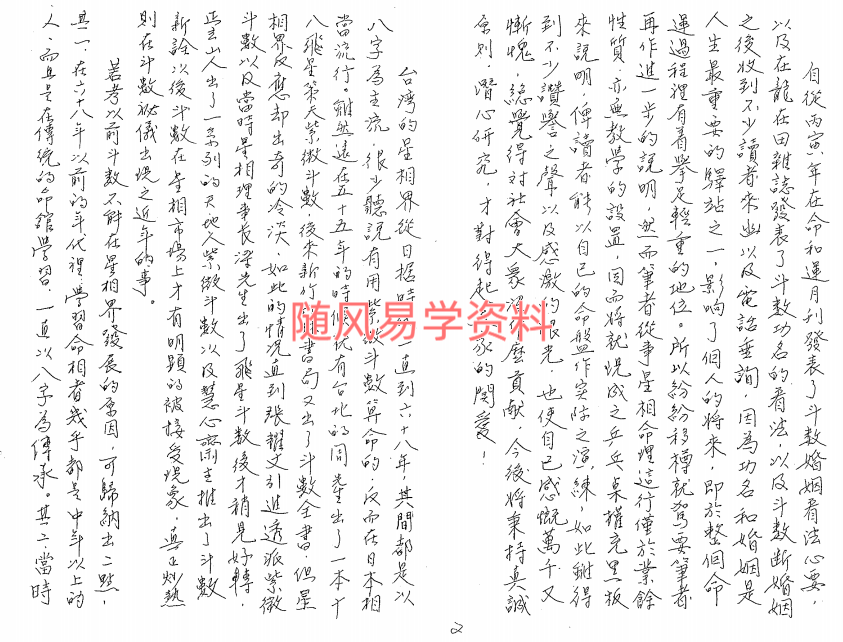 自從丙寅年在命和運月刊發表了斗數婚姻看法心要，
以及在龍在田雜誌發表了斗數功名的看法，以及斗數斷婚姻
之後收到不少讀者來函以及電話垂詢，因為功名和婚姻是
人生最重要的驛站之一，影響了個人的將來，即於整個命
運過程裡有着舉足輕重的地位。所以紛紛移樽就駕要筆者
再作進一步的說明，然而筆者從事星相命理這行僅於業餘
性質，亦無教學的設置，因而將就現成之乒乓桌權充黑板
來說明，俾讀者能以自己的命盤作實際之演練，如此雖得
到不少讚譽之聲以及感激的眼光，也使自己感慨萬千又
慚愧，總覺得對社會大眾沒什麼貢獻，今後將秉持真誠
原則，潛心研究，才對得起大家的関愛！
台湾的星相界從日據時 一直到六十八年，其間都是以
八字為主流，很少聽説有用紫微斗數算命的，反而在日本相
當流行。雖然遠在五十五年的時候就有台北的 先生出了一本十
八飛星策天紫微斗數，後來新竹 書局又出了斗數全書，但星
相界反應却出奇的冷淡，如此的情况直到張耀文引進透派紫微
斗數以及當時星相理事長 先生出了飛星斗數後才稍見好轉，
正玄山人出了一系列的天地人紫微斗數以及慧心齋主推出了斗數
新詮以後斗數在星相市場上才有明顯的被接受現象，真正灼熱
則在斗數祕儀出現之近年的事。
若考以前斗數不能在星相界發展的原因，可歸納出二點，
其一、在六十八年以前的年代裡，學習命相者幾乎都是中年以上的
人，而且是在傳統的命舘學習，一直以八字為傳承。其二、當時
2
随风易学资料